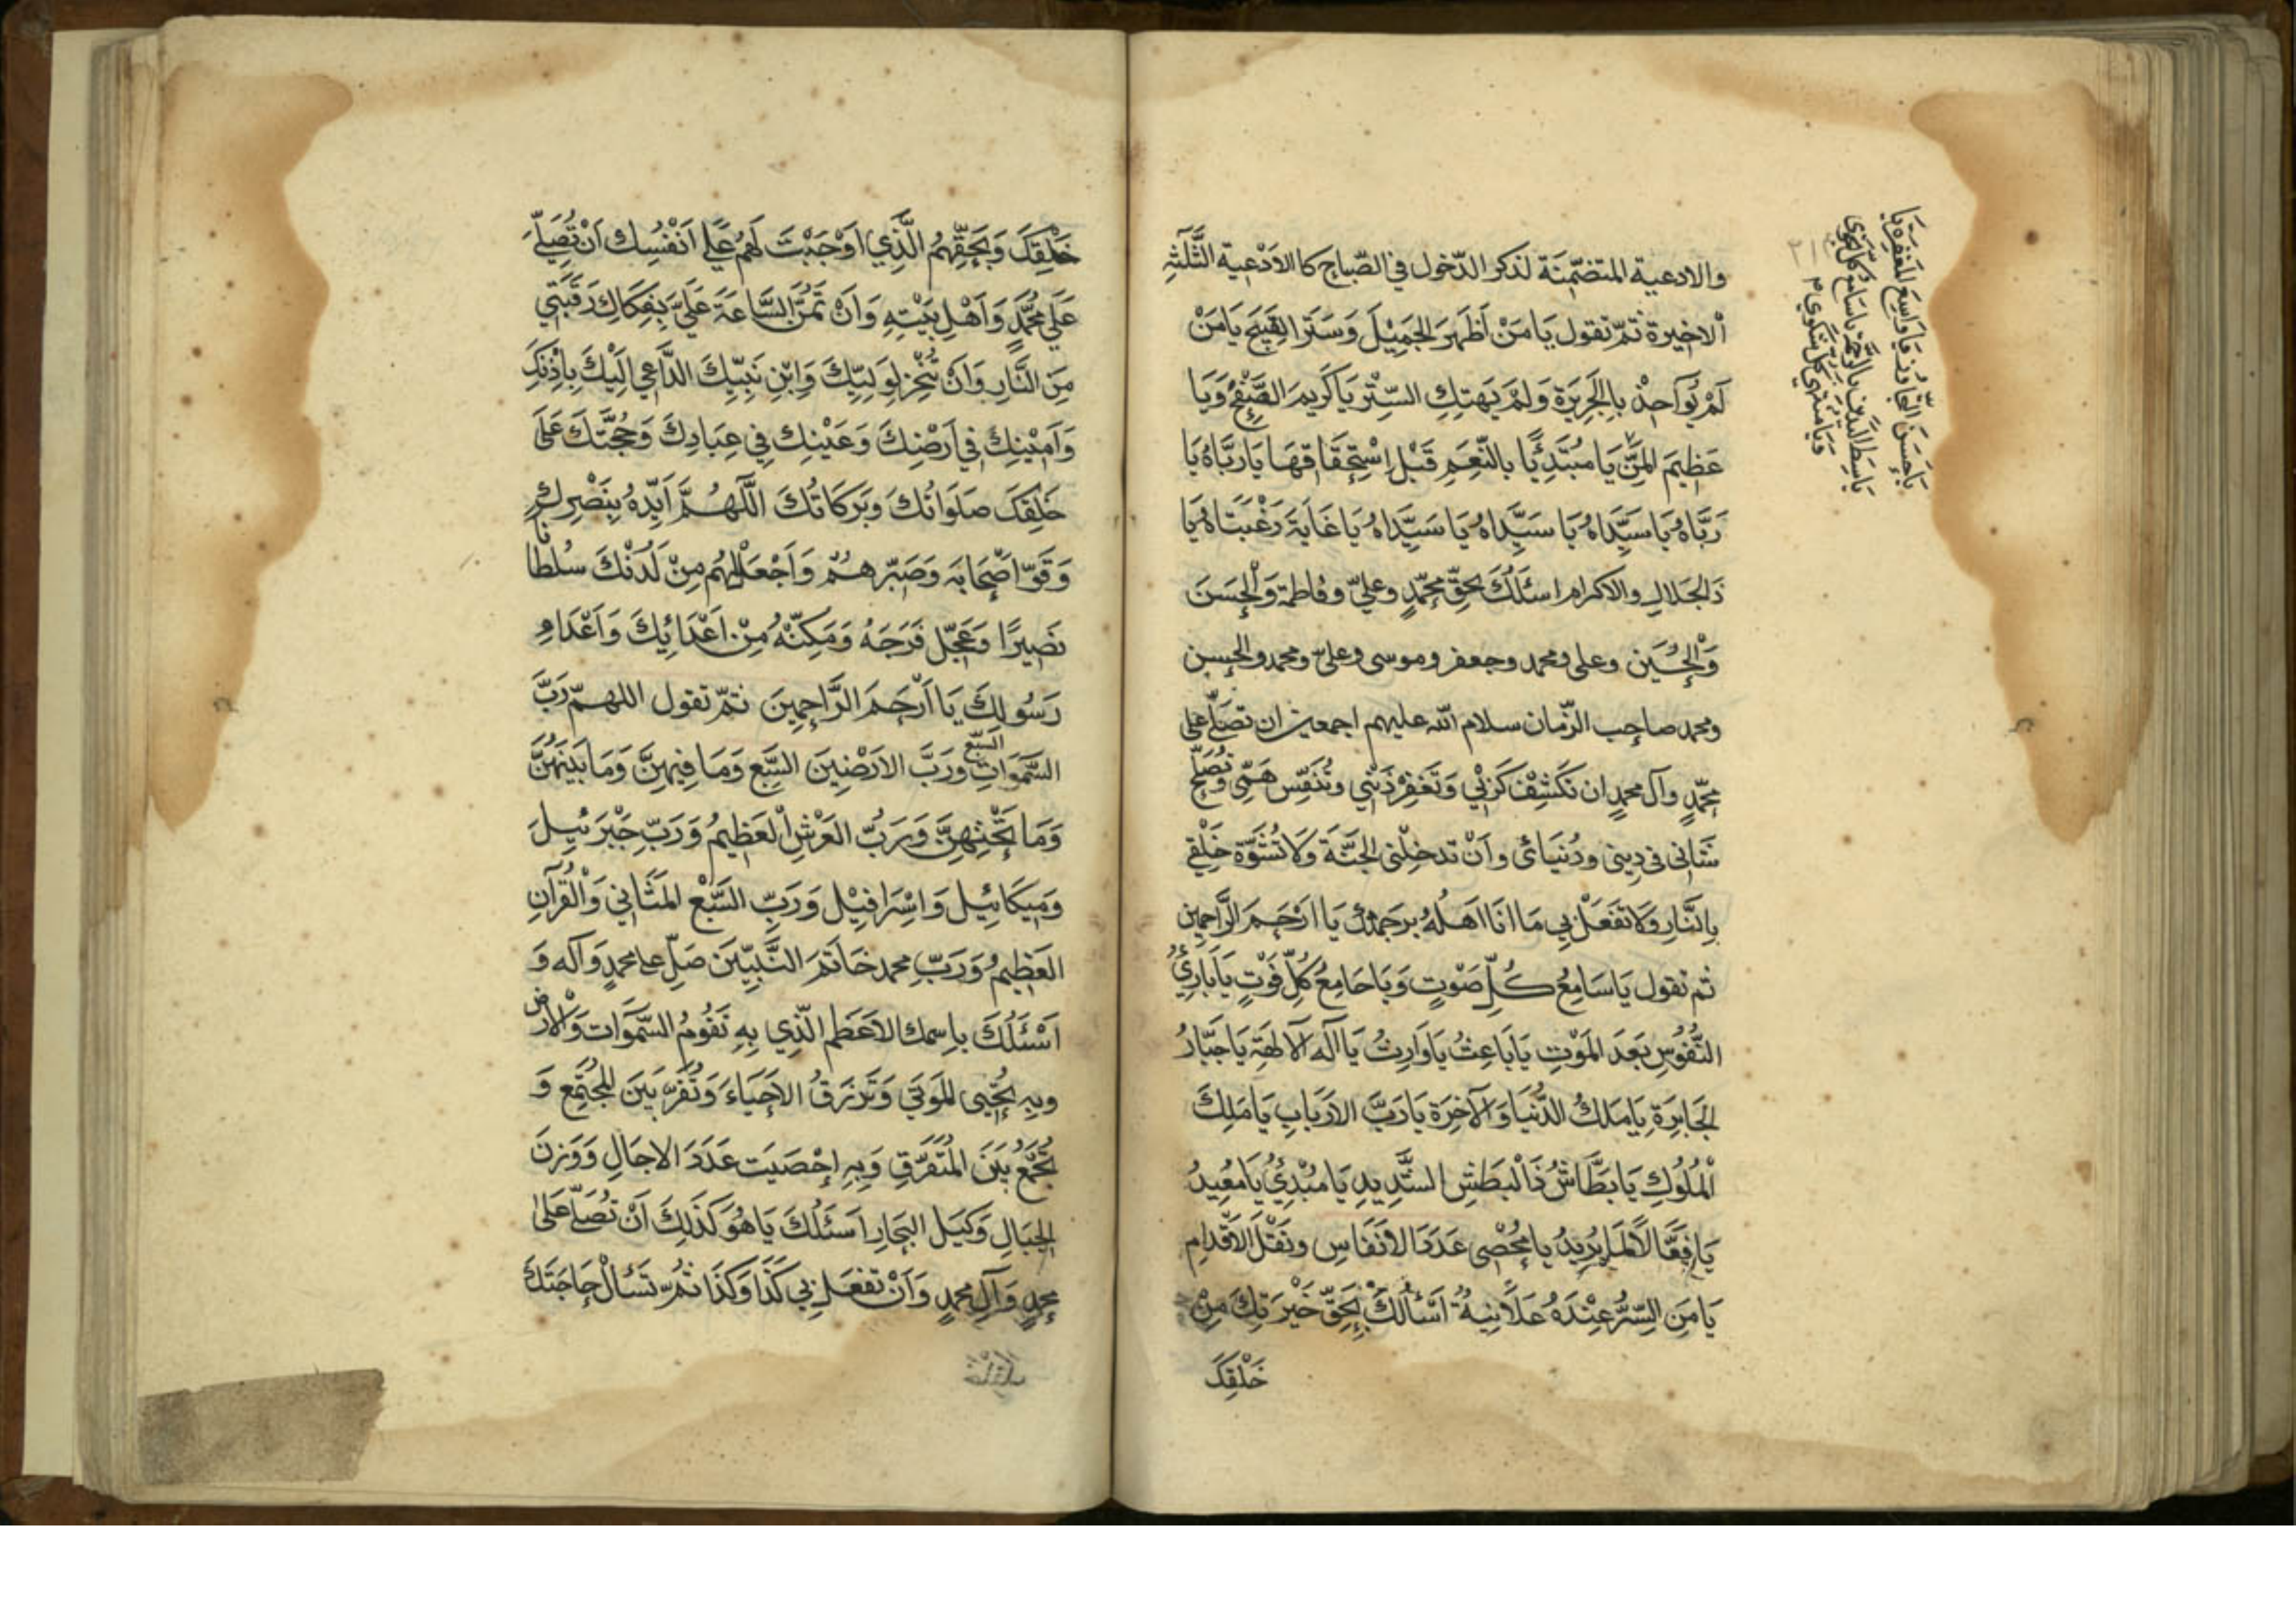 والادعية المتضمّنة لذكر الدّخول في الصّباح كالادْعية الثَّلٰثة
الاخيرة ثمّ تقول يَا مَنْ اَظْهَرَ الجَمِيْلَ وَسَتَرَ القَبِيْحَ يَا مَنْ
لَمْ يُؤَاخِذْ بِالْجَرِيْرَةِ وَلَمْ يَهتِكِ السِّتْرَ يَا كَرِيمَ الصَّفْحِ وَيَا
عَظِيمَ المَنِّ يَا مُبْتَدِئًا بِالنِّعَمِ قَبْلَ اِسْتِحْقَاقِهَا يَا رَبَّاهُ يَا
رَبَّاهُ يَا سَيِّدَاهُ يَا سَيِّدَاهُ يَا سَيِّدَاهُ يَا غَايَةَ رَغْبَتَاهُ يَا
ذَالجَلالِ والاكرام اسئَلُكَ بِحَقِّ مُحَمَّدٍ وعليّ وفاطمة وَالْحَسَن
وَالْحُسَيْن وعلى ومحمد وجعفر وموسى وعلىّ ومحمد والحسن
ومحمد صاحب الزّمان سلام الله عليهم اجمعين ان تصَلّى على
محمّدٍ وآل محمدٍ ان تكْشِفْ كَرْبي وَتَغفِرْ ذَنْبي وتُنَفِّس هَمّي وَتُصْلِحَ
شَانى في دِينى ودُنيَائى وَاَنْ تدخِلْنى الجَنَّةَ وَلَا تُشَوِّهْ خَلْقي
بِالنَّارِ وَلا تَفْعَلْ بي مَا اَنَا اَهلُهُ برحمتك يَا ارْحَمَ الرَّاحِمِين
ثم تقول يَا سَامِعُ كُلِّ صَوْتٍ وَيَا جَامِعُ كُلِّ فَوْتٍ يَا بَارِئُ
النُّفُوسِ بَعدَ المَوْتِ يَا بَاعِثُ يَا وَارِثُ يَا اِلٰه الآلِهَةِ يَا جَبَّارُ
الجَبَابِرَةِ يَا مَلِكُ الدُّنْيَا وَالآخِرَةِ يَا رَبَّ الارْبَابِ يَا مَلِكَ
الْمُلُوكِ يَا بَطَّاشُ ذَا الْبَطْشِ الشَّدِيدِ يَا مُبْدِئُ يَا مُعِيدُ
يَا فَعَّالاً لِمَا يُرِيدُ يا مُحْصِى عَدَدَ الانْفَاسِ ونَقْلَ الاَقْدَامِ
يَا مَنِ السِّرُّ عِنْدَهُ عَلانِيةٌ اَسْأَلُكَ بِحَقِّ خَيْرَتِكَ مِنْ
خَلْقِكَ
يَا حَسَنَ التَّجاوُزِ يَا وَاسِعَ المَغْفِرَةِ يَا
بَاسِطَ اليَدَيْنِ بِالرَّحْمَةِ يَا سَامِعَ كُلِّ نَجْوى
وَيَا مُنْتَهى كُلِّ شَكْوى
خَلْقِكَ وَبِحَقِّهِمُ الَّذِي اَوْجَبْتَ لَهُمْ عَلى اَنْفُسِكَ اَنْ تُصَلّي
عَلى مُحَمَّدٍ وَاَهْلِ بَيْتِهِ وَاَنْ تَمُنَّ السَّاعَةَ عَلَيَّ بِفِكَاكِ رَقَبَتي
مِنَ النَّارِ وَاَنْ تُنْجِزَ لِوَلِيِّكَ وَابْنِ نَبِيِّكَ الدَّاعي اِلَيْكَ بِاِذْنِكَ
وَاَمِيْنِكَ في اَرْضِكَ وَعَيْنِكَ فِي عِبَادِكَ وَحُجَّتِكَ عَلى
خَلْقِكَ صَلَوَاتُكَ وَبَرَكَاتُكَ اللّهُمَّ اَيِّدْهُ بِنَصْرِكَ
وَقَوِّ اَصْحَابَه وَصَبِّرهُمْ وَاجْعَلْ لَهُم مِنْ لَدُنْكَ سُلْطَانًا
نَصِيرًا وَعَجِّل فَرَجَهُ وَمَكِّنْهُ مِنْ اَعْدَائِكَ وَاَعْدَاءِ
رَسُولِكَ يَا اَرْحَمَ الرَّاحِمِينَ ثمّ تقول اللهمّ رَبَّ
السَّمٰوَاتِ السَّبْع وَرَبَّ الارَضِينَ السَّبْع وَمَا فِيهِنَّ وَمَا بَيْنَهُنَّ
وَمَا تَحْتَهِنَّ وَرَبُّ العَرْشِ الْعَظِيمُ وَرَبِّ جَبْرَئِيلَ
وَمِيكَائِيْل وَاِسْرَافِيْل وَرَبِّ السَّبْعِ المَثَاني وَالْقُرْآنِ
العَظِيمُ وَرَبِّ محمد خَاتَمَ النَّبِيِّينَ صَلِّ على محمدٍ وَآلِه وَ
اَسْئَلُكَ باِسْمِكَ الاَعْظَمِ الّذي بِهِ تَقُومُ السَّمٰوَات وَالْاَرْض
وبِهِ تُحْيى المَوْتى وَتَرْزُقُ الاَحْيَاءَ وَتُفَرِّقُ بَيْنَ المُجْتَمِع وَ
تَجْمَعُ بَيْنَ المُتَفَرِّقِ وَبِهِ اِحْصَيْتَ عَدَدَ الاجَالِ وَوَزنَ
الجِبَالِ وَكَيْلَ البِحَارِ اَسئَلُكَ يَا هُوَ كَذٰلِكَ اَنْ تُصَلّى عَلى
محمدٍ وَآلِ محمدٍ وَاَنْ تفعَل بي كَذَا وَكَذَا ثُمَّ تَسْئَالْ حَاجَتَكَ